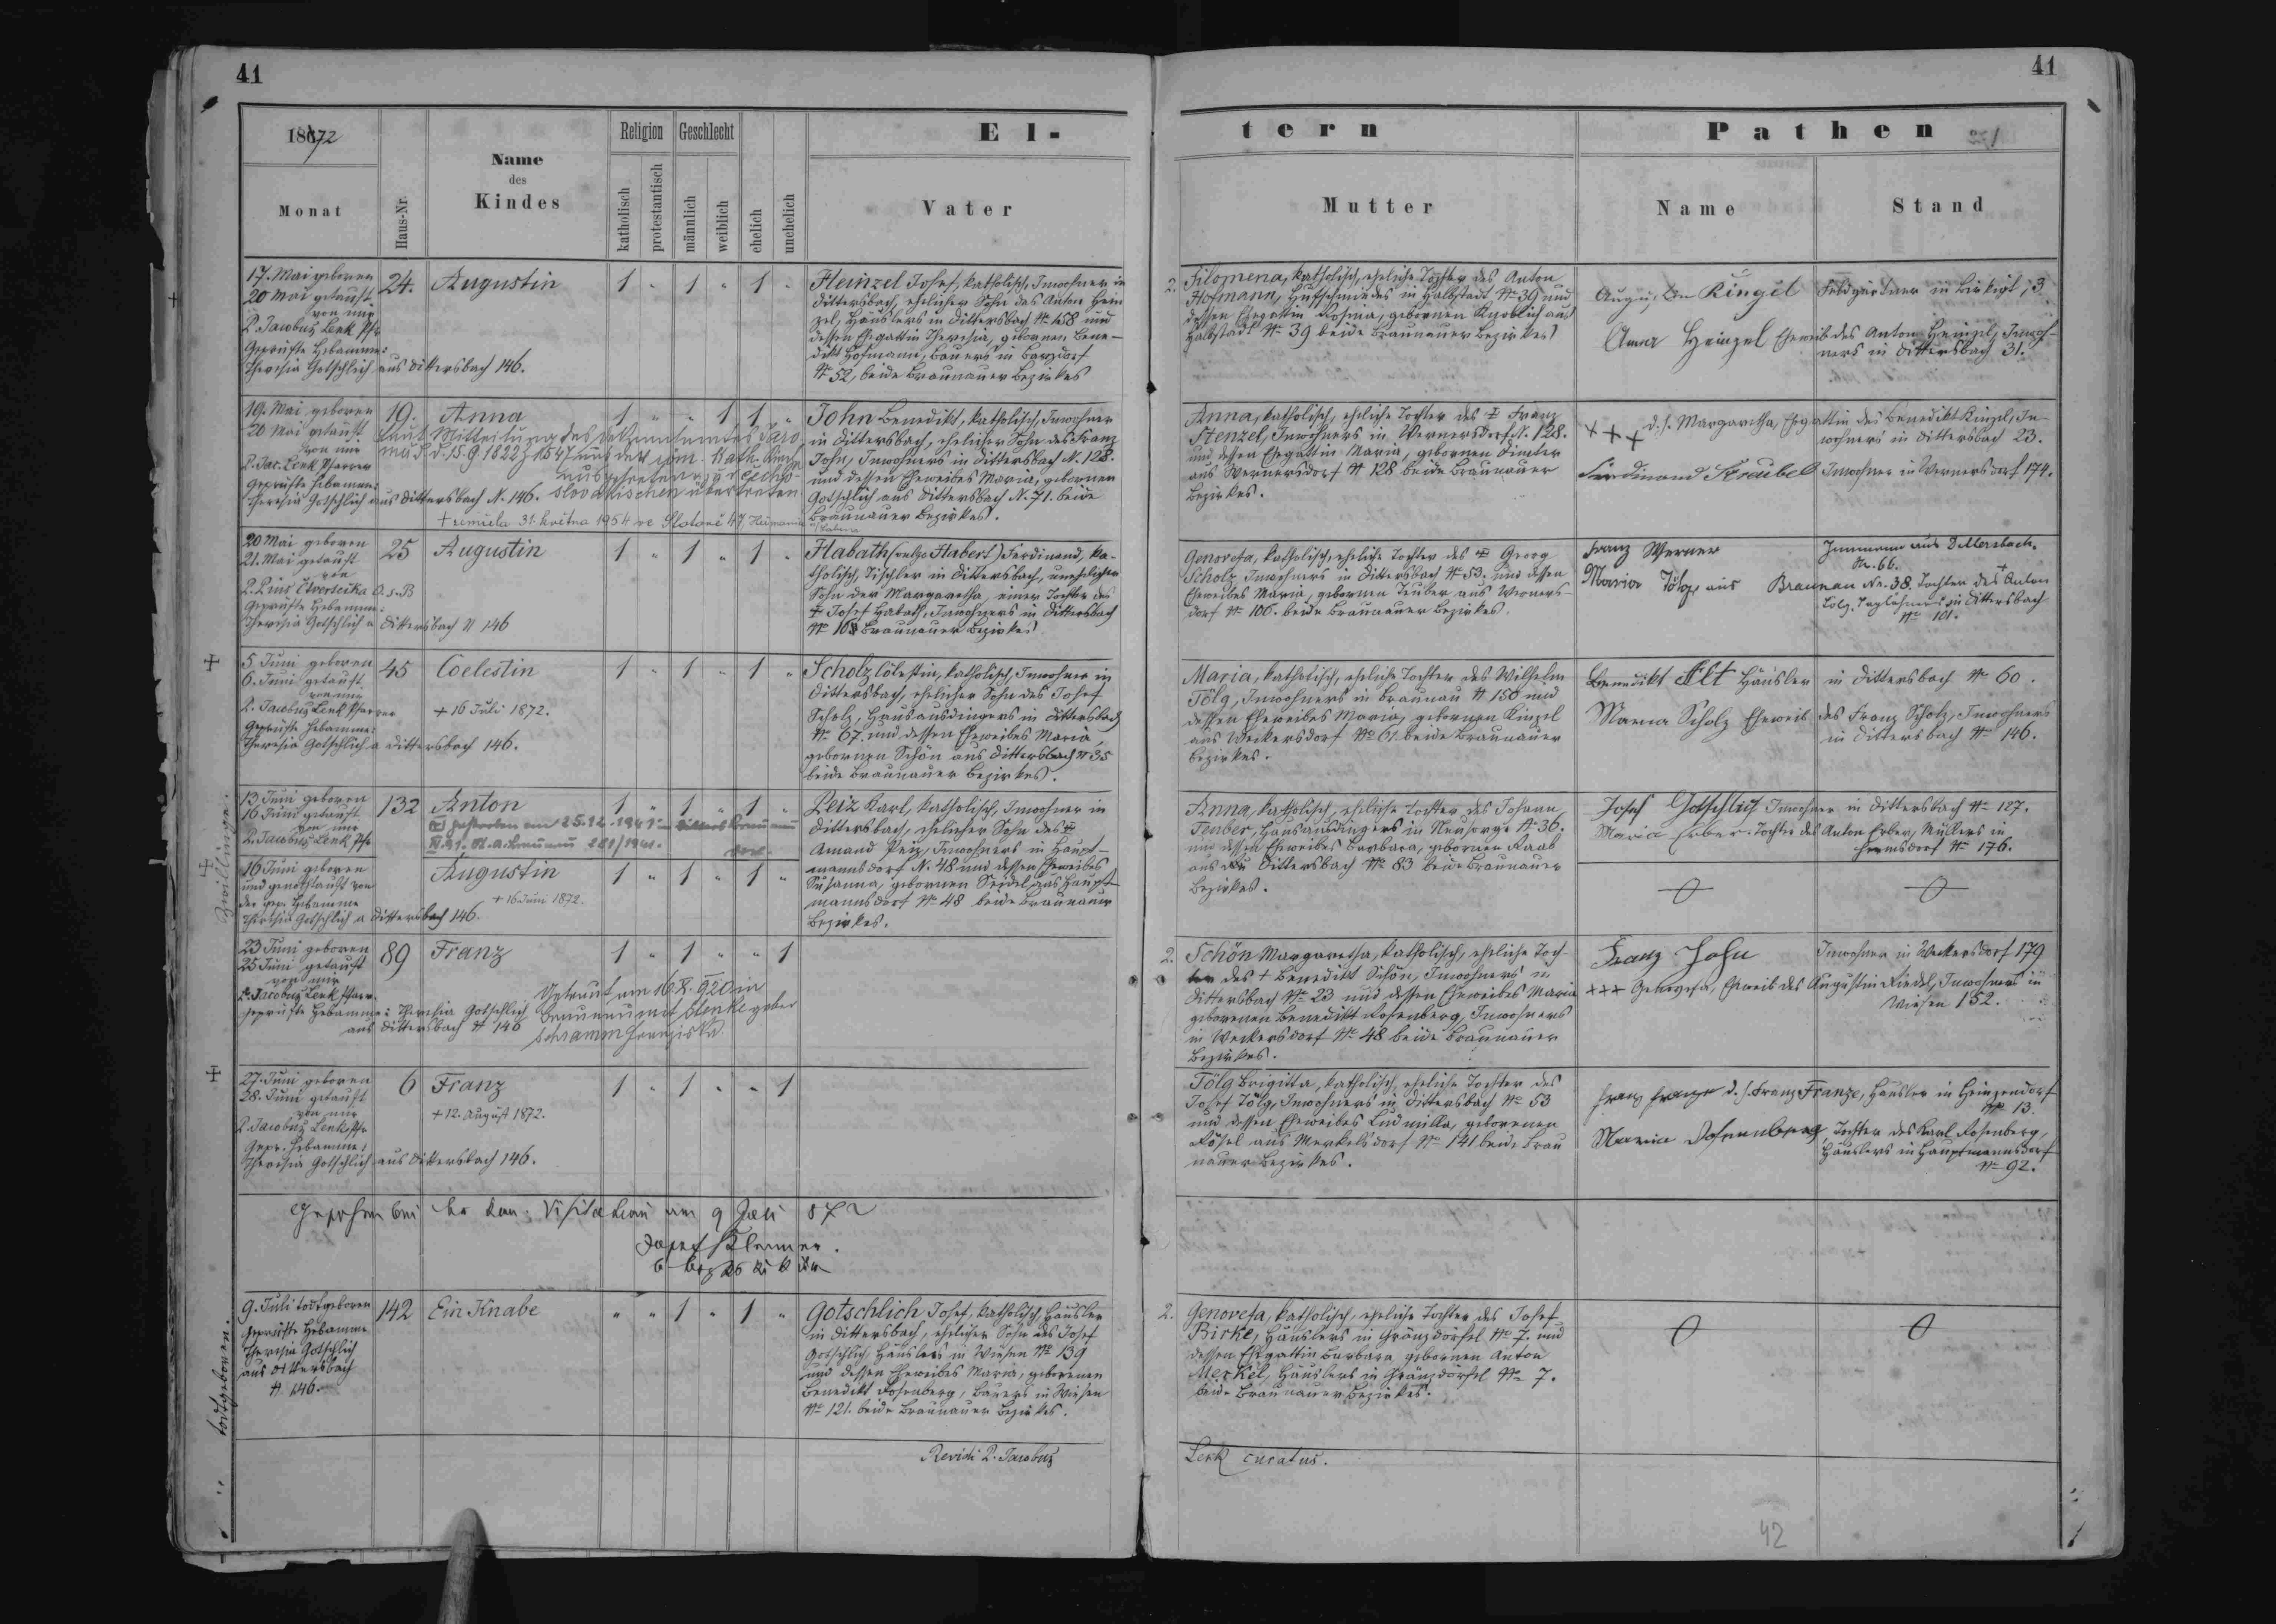 41
41
1872
Monat
Haus-Nr.
Name
des
Kindes
Religion
Geschlecht
katholisch
protestantisch
männlich
weiblich
ehelich
unehelich
El-
tern
Vater
Mutter
Pathen
Name
Stand
17. Mai geboren
20 Mai getauft
von mir
P. Jacobus Lenk Pfr
Geprüfte Hebamme:
Theresia Gotschlich aus Dittersbach 146.
24.
Augustin
1 " 1 " 1 "
Heinzel Josef, katholisch, Inwohner in
Dittersbach, ehelicher Sohn des Anton Hein
zel, Häuslers in Dittersbach № 158 und
dessen Ehegattin Theresia, gebornen Bene-
dikt Hofmann, Bauers in Barzdorf
№ 52, beide Braunauer Bezirkes
2. Filomena, katholisch, eheliche Tochter des Anton
Hofmann, Hufschmiedes in Halbstadt № 39 und
dessen Ehegattin Rosina, gebornen Knoblich aus
Halbstadt № 39 beide Braunauer Bezirkes
Augustin Ringel Feldgärtner in Birkigt, 3
Anna Heinzel Eheweib des Anton Heinzel, Inwoh-
ners in Dittersbach 31.
19. Mai geboren
20 Mai getauft
von mir
P. Jac. Lenk Pfarrer
Geprüfte Hebamme:
Theresia Gotschlich aus Dittersbach N. 146.
19.
Anna
1 " " 1 1 "
Laut Mitteilung des
aus der röm. Kath. Kirche
ausgetreten, z. d. Čecho-
slovakischen übertreten
+ zemřela 31. května 1954 ve
John Benedikt, katholisch, Inwohner
in Dittersbach, ehelicher Sohn des Franz
John, Inwohners in Dittersbach N. 128.
und dessen Eheweibes Maria, gebornen
Gotschlich aus Dittersbach N. 71. beide
Braunauer Bezirkes.
Anna, katholisch, eheliche Tochter des ‡ Franz
Stenzel, Inwohners in Wernersdorf N. 128.
und dessen Ehegattin Maria, gebornen Dimter
aus Wernersdorf № 128 beide Braunauer
Bezirkes.
+++ d. h. Margaretha, Ehegattin des Benedikt Kinzel, In-
wohners in Dittersbach 23.
Ferdinand Straubel Inwohner in Wernersdorf 174.
20 Mai geboren
21. Mai getauft
von
P. Pius Čtvrtečka O.S.B
Geprüfte Hebamme:
Theresia Gotschlich a Dittersbach N 146
25
Augustin
1 " 1 " 1 "
Habath (vulgo Habert) Ferdinand, ka-
tholisch, Tischler in Dittersbach, unehelicher
Sohn der Margaretha, einer Tochter des
‡ Josef Habath, Inwohners in Dittersbach
Braunauer Bezirkes
Genovefa, katholisch, eheliche Tochter des ‡ Georg
Scholz Inwohners in Dittersbach № 53. und dessen
Eheweibes Maria, gebornen Teuber aus Werners-
dorf № 106. beide Braunauer Bezirkes.
Franz Werner Inmann aus Dittersbach
Nr. 66.
Maria Tölg, aus Braunau Nr. 38. Tochter des + Anton
Tölg, Taglöhners in Dittersbach
№ 101.
5. Juni geboren
6. Juni getauft
von mir
P. Jacobus Lenk Pfarrer
Geprüfte Hebamme:
Theresia Gotschlich a Dittersbach 146.
45
Coelestin
+ 16 Juli 1872.
1 " 1 " 1 "
Scholz Cölestin, katholisch, Inwohner in
Dittersbach, ehelicher Sohn des Josef
Scholz, Hausausdingers in Dittersbach
№ 67. und dessen Eheweibes Maria,
gebornen Schön aus Dittersbach № 35
beide Braunauer Bezirkes.
Maria, katholisch, eheliche Tochter des Wilhelm
Tölg, Inwohners in Braunau № 150 und
dessen Eheweibes Maria, gebornen Kinzel
aus Weckersdorf № 61. beide Braunauer
Bezirkes.
Benedikt Elt Häusler in Dittersbach № 60.
Maria Scholz Eheweib des Franz Scholz, Inwohners
in Dittersbach № 146.
Zwillinge.
13. Juni geboren
16 Juni getauft
von mir
P. Jacobus Lenk Pfr
132
Anton
1 " 1 " 1 "
gestorben am 25.12.1941
16 Juni geboren
und genothtauft von
der gepr. Hebamme
Theresia Gotschlich a Dittersbach 146.
Augustin
+ 16 Juni 1872.
1 " 1 " 1 "
Peiz Karl, katholisch, Inwohner in
Dittersbach, ehelicher Sohn des ‡
Amand Peiz, Inwohners in Haupt-
mannsdorf N. 48 und dessen Eheweibes
Susanna, gebornen Seidel aus Haupt-
mannsdorf № 48 beide Braunauer
Bezirkes.
Anna, katholisch, eheliche Tochter des Johann
Teuber, Hausausdingers in Neusorge № 36.
und dessen Eheweibes Barbara, gebornen Raab
aus Dittersbach № 83 beide Braunauer
Bezirkes.
Josef Gotschlich Inwohner in Dittersbach № 127.
Maria Erber. Tochter des Anton Erber, Müllers in
Hermsdorf № 176.
23 Juni geboren
25 Juni getauft
von mir
P. Jacobus Lenk Pfarr.
Geprüfte Hebamme: Theresia Gotschlich
aus Dittersbach № 146
89
Franz
1 " 1 " " 1
Getraut am 16. X. 920 in
Braunau mit
Schramm Franziska
2. Schön Margaretha, katholisch, eheliche Toch-
ter des + Benedikt Schön, Inwohners in
Dittersbach № 23 und dessen Eheweibes Maria
geborenen Benedikt Rosenberg, Inwohners
in Weckersdorf № 48 beide Braunauer
Bezirkes.
Franz John Inwohner in Weckersdorf 179
+++ Genovefa, Eheweib des Augustin Riedel, Inwohners in
Wiesen 152.
27. Juni geboren
28. Juni getauft
von mir
P. Jacobus Lenk Pfr
Gepr. Hebamme:
Theresia Gotschlich aus Dittersbach 146.
6
Franz
+ 12. August 1872.
1 " 1 " " 1
Tölg Brigitta, katholisch, eheliche Tochter des
Josef Tölg, Inwohners in Dittersbach № 53
und dessen Eheweibes Ludmilla, geborenen
Rösel aus Merkelsdorf № 141 beide Brau
nauer Bezirkes.
Franz Franze d. h. Franz Franze, Häusler in Heinzendorf
№ 13.
Maria Rosenberg Tochter des Karl Rosenberg,
Häuslers in Hauptmannsdorf
№ 92.
Gesehen bei der kan. Visitation am 9 Juli 872
todtgeboren.
9. Juli todtgeboren
Geprüfte Hebamme
Theresia Gotschlich
aus Dittersbach
№ 146.
142
Ein Knabe
" " 1 " 1 "
Gotschlich Josef, katholisch, Häusler
in Dittersbach, ehelicher Sohn des Josef
Gotschlich, Häuslers in Wiesen № 139
und dessen Eheweibes Maria, geborenen
Benedikt Rosenberg, Bauers in Wiesen
№ 121. beide Braunauer Bezirkes.
2. Genovefa, katholisch, eheliche Tochter des Josef
Birke, Häuslers in Gränzdörfel № 7. und
dessen Ehegattin Barbara, gebornen Anton
Merkel, Häuslers in Gränzdörfel № 7.
beide Braunauer Bezirkes.
Revidi P. Jacobus
Lenk curatus.
42